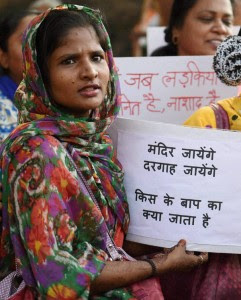 जब लड़किय
है, नाशाद
मंदिर जायेंगे
दरगाह जायेंगे
किस के बाप का
क्या जाता है